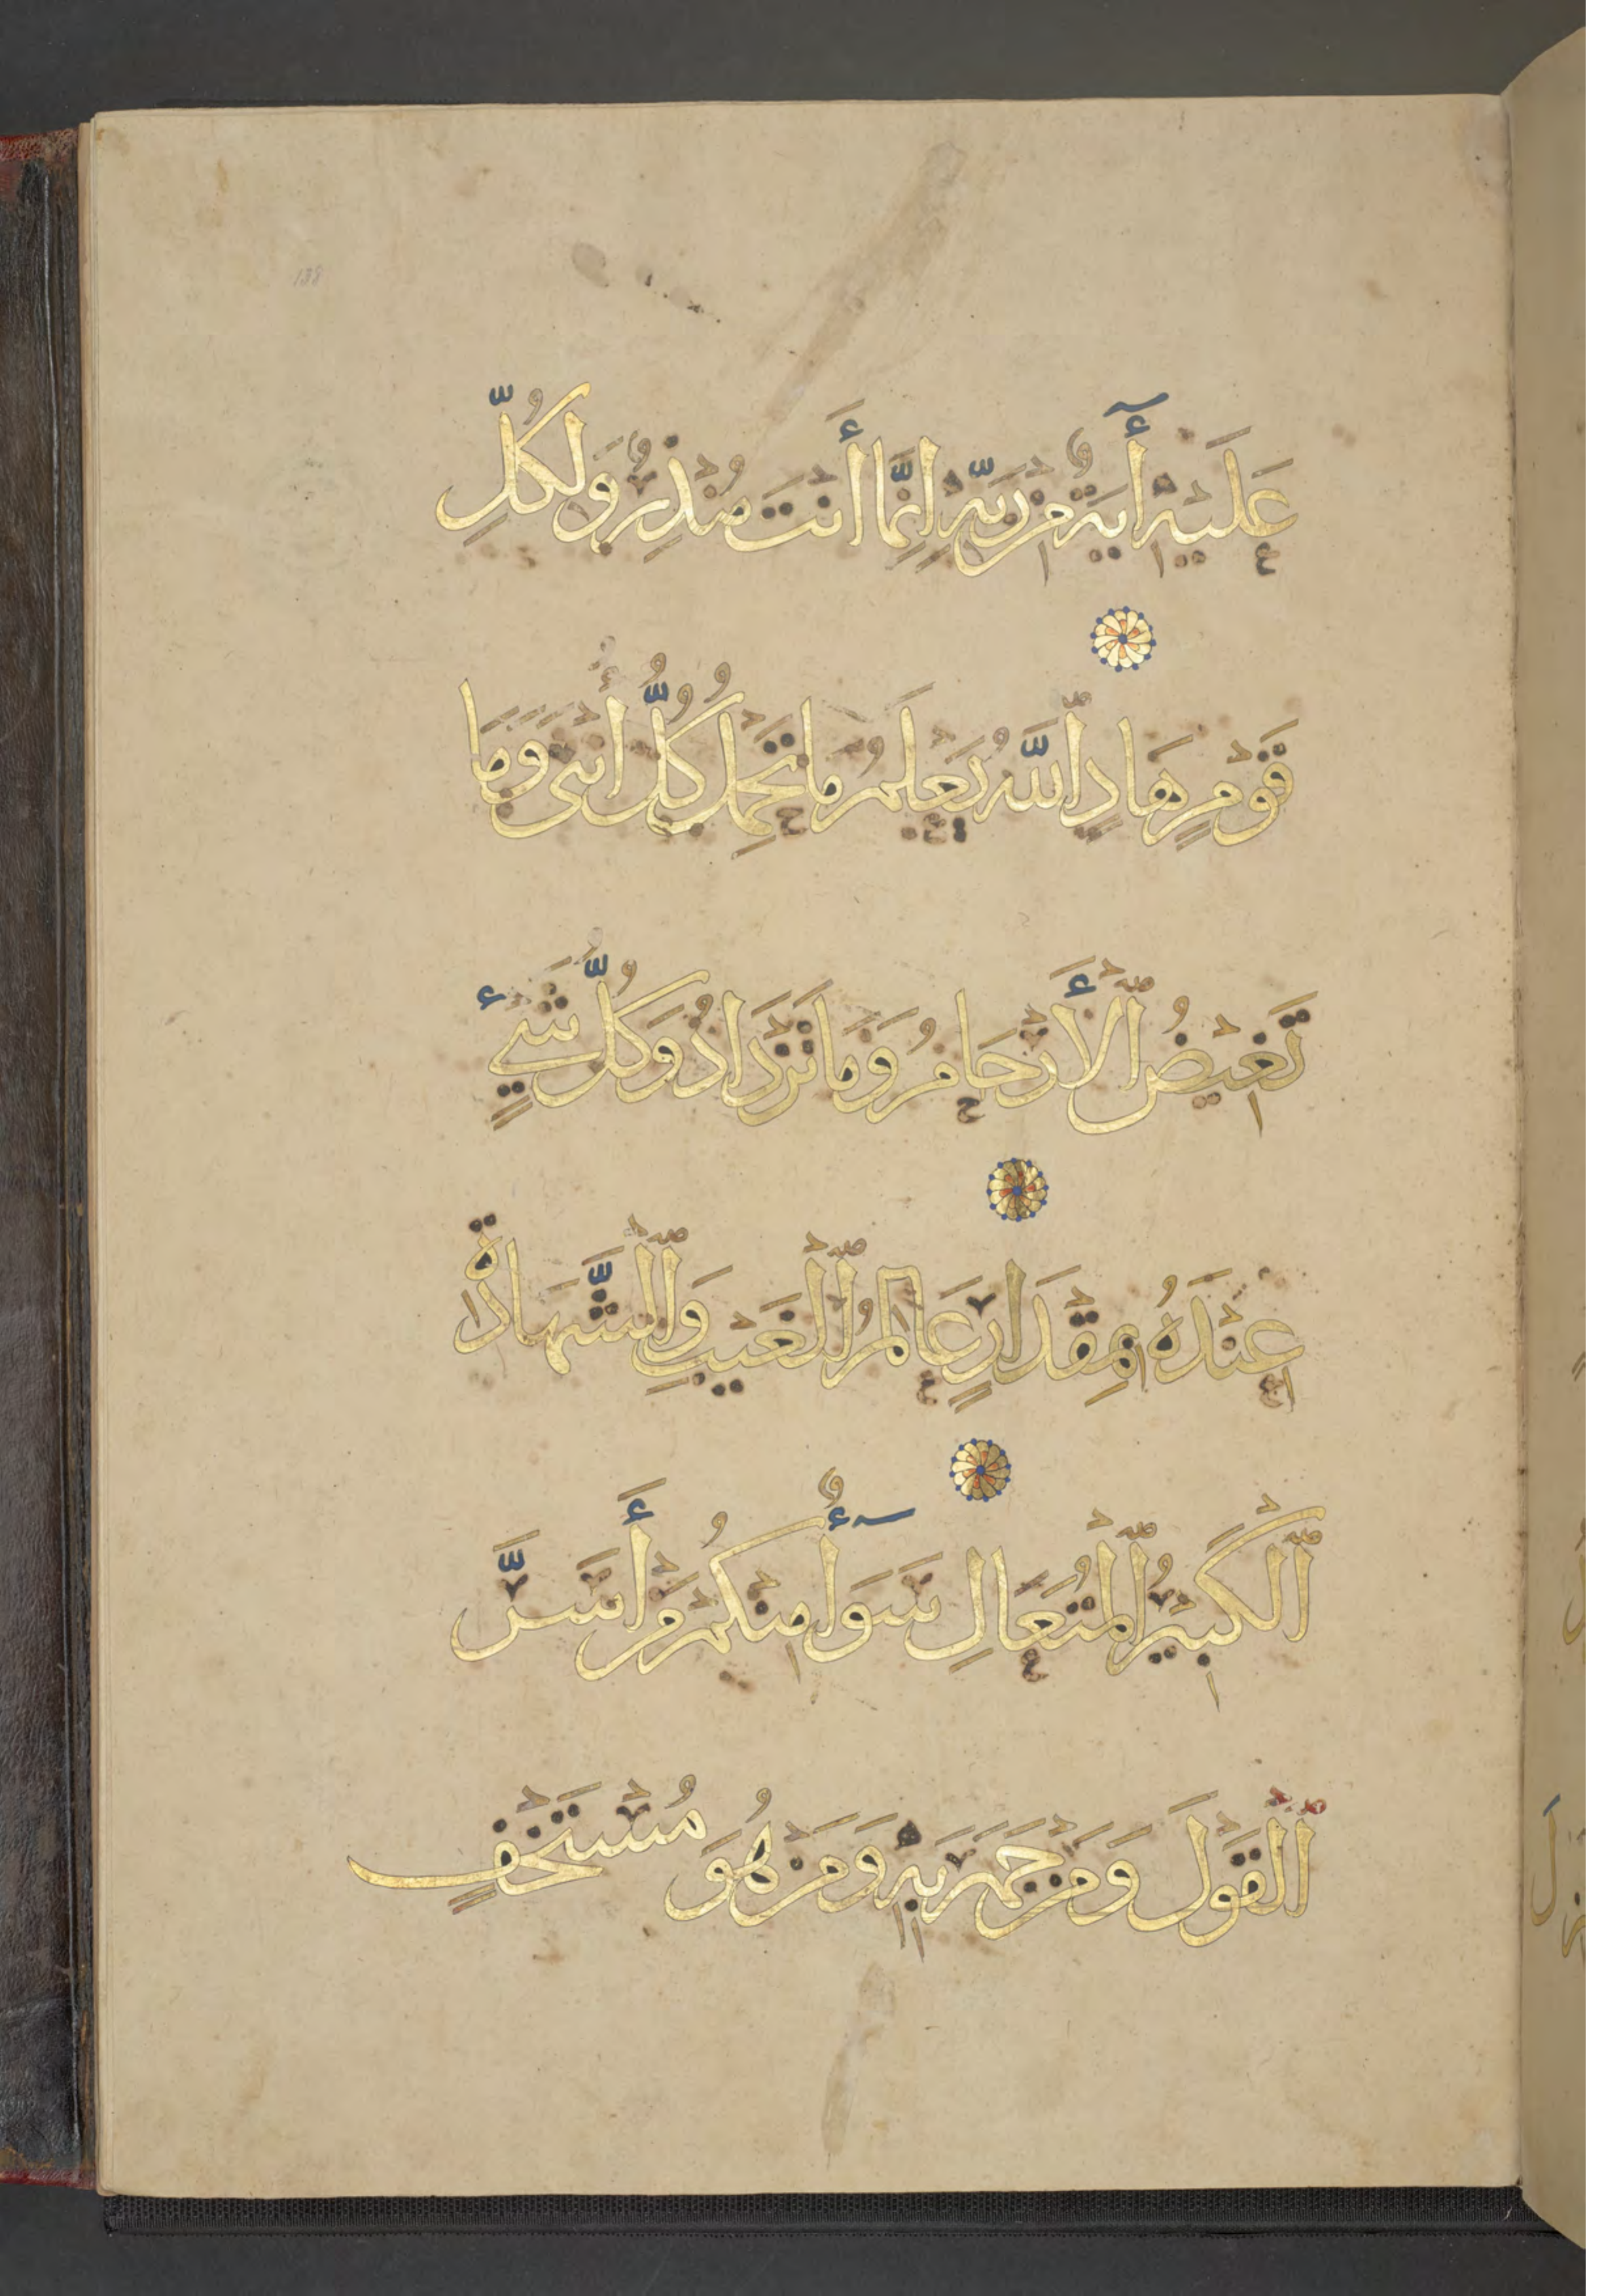 عَلَيْهِ أٓيَةٌ مِنْ رَبِّهٖ إِنَّمَا أَنْتَ مُنْذِرٌ وَلِكُلِّ
قَوْمٍ هَادٍ ٱللَّهُ يَعْلَمُ مَا تَحْمِلُ كُلُّ أُنْثَى وَمَا
تَغِيْضُ ٱلْأَرْحَامُ وَمَا تَزْدَادُ وَكُلُّ شَيْءٍ
عِنْدَهُ بِمِقْدَارٍ عَالِمُ ٱلْغَيْبِ وَٱلشَّهَادَةِ
ٱلْكَبِيْرُ ٱلْمُتَعَالِ سَوَآءٌ مِنْكُمْ مَنْ أَسَرَّ
ٱلْقَوْلَ وَمَنْ جَهَرَ بِهٖ وَمَنْ هُوَ مُسْتَخْفٍ
138